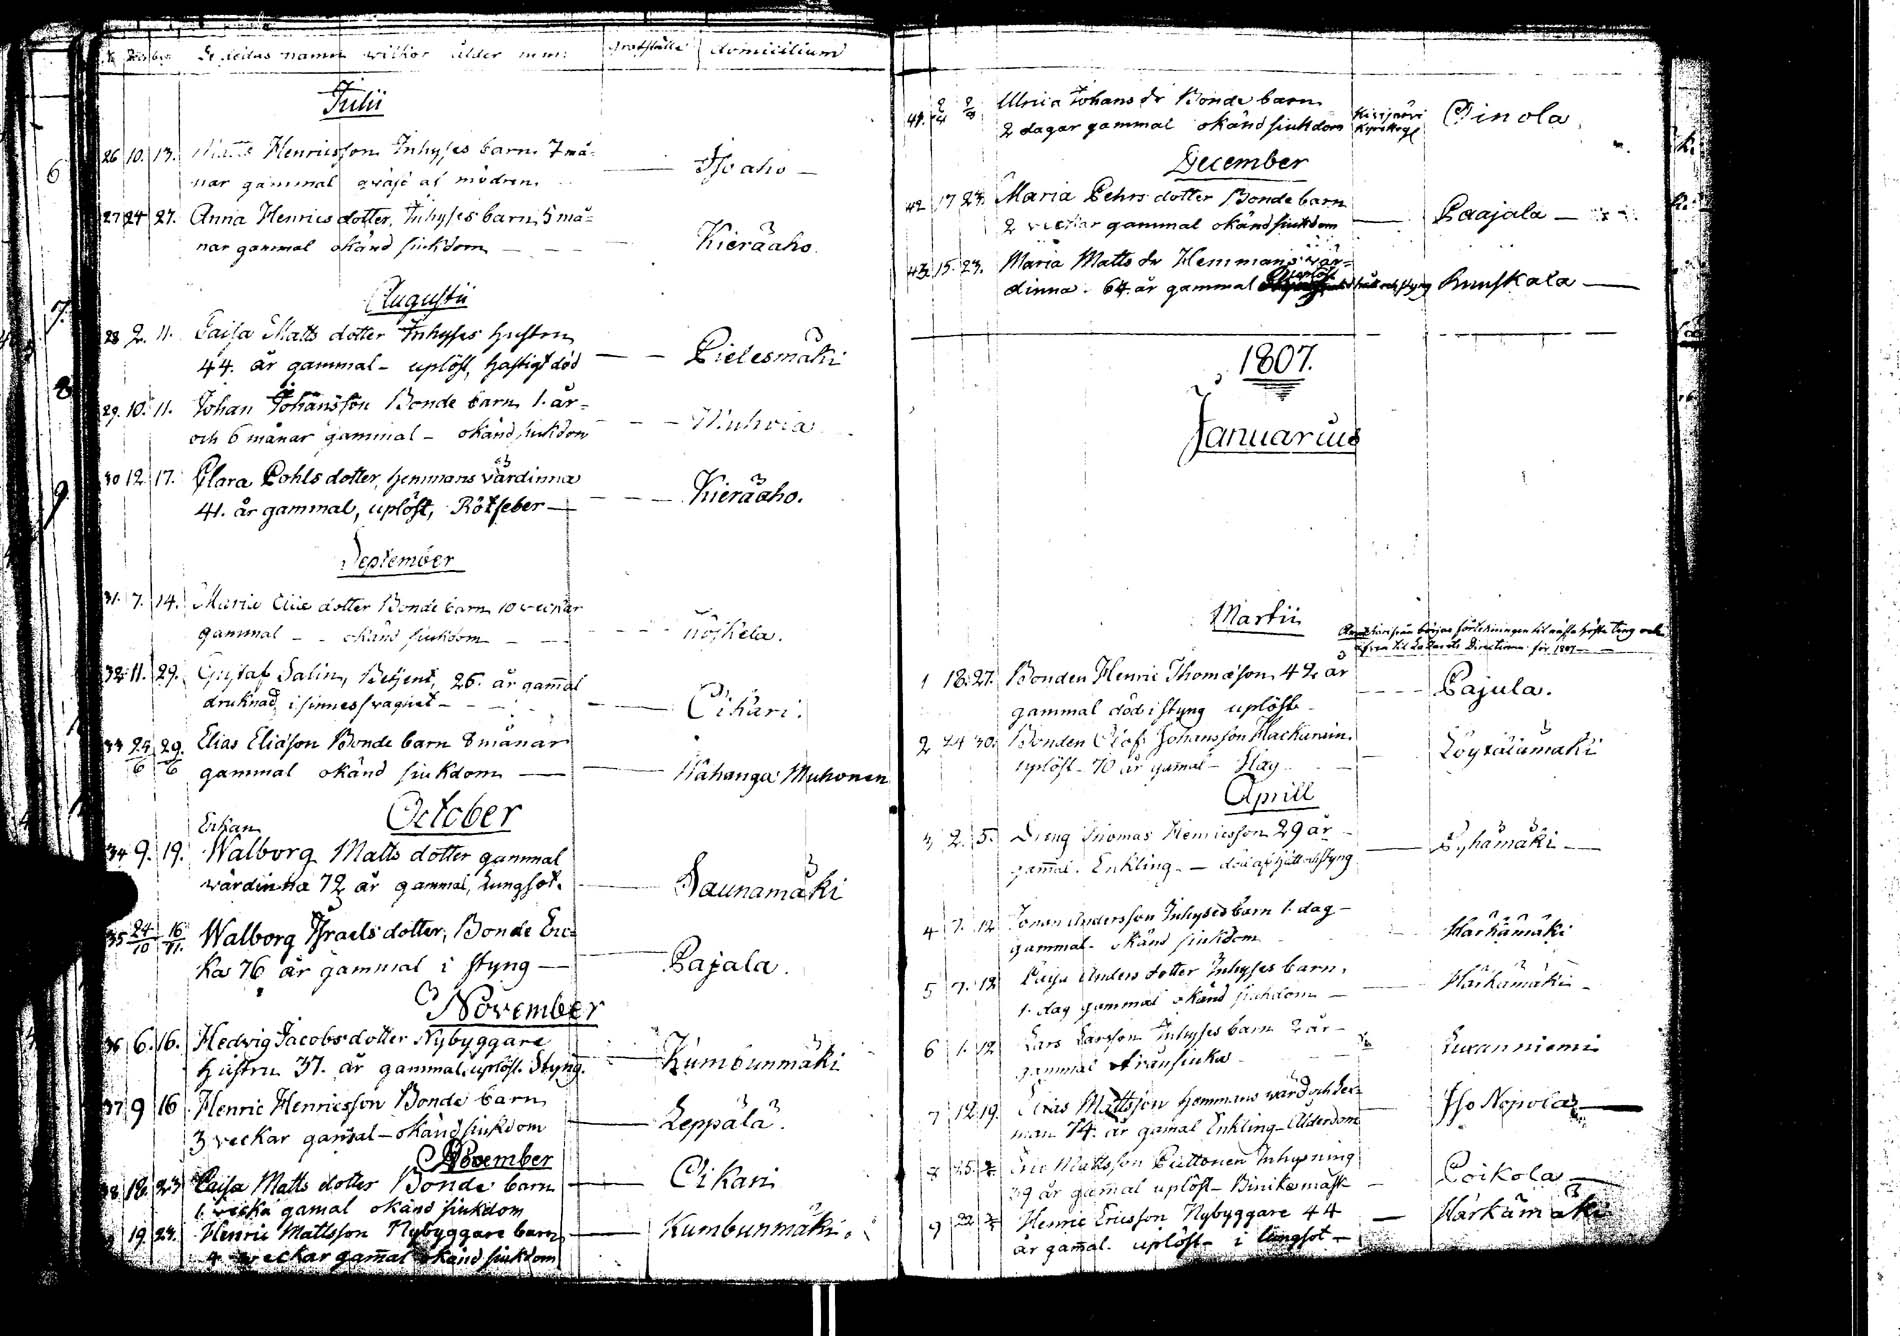 namn wilkor ålder m.m. domicilium
Julii
26 10. 13. Matts Henricsson Inhyses barn 7 må=
nar gammal af modren Isoaho
27 24 27. Anna Henrics dotter, Inhyses barn, 5 må=
nar gammal okänd siukdom Kieräaho.
Augusti
28 2. 11. Caisa Matts dotter Inhyses hustru
44. år gammal - uplöst, hastigt död Pielesmäki
29. 10. 11. Johan Johansson Bonde barn 1. år=
och 6 månar gammal - okänd siukdom Muhoia
30 12 17. Clara Pohls dotter, hemmans värdinna
41. år gammal, uplöst, Rötfeber Kieräaho.
September
31. 7. 14. Maria dotter Bonde barn 10 veckar
gammal - - okänd siukdom
32 11. 29. Gustaf Salin, Betjent, 26. år gammal
druknad i sinnessvaghet Oikari.
33 29/6 Elias Eliasson Bonde barn 8 månar
gammal okänd siukdom Wahanga Muhonen
October
Enkan
34 9. 19. Walborg Matts dotter gammal
wärdinna 72 år gammal, Lungsot. Saunamäki
35 24/10 16/11. Walborg Israels dotter, Bonde En=
ka 76 år gammal i styng Pajala.
November
36 6. 16. Hedvig Jacobs dotter Nybyggare
hustru 37. år gammal. uplöst. Styng. Kumbunmäki
37 9 16 Henric Henricsson Bonde barn
3 veckar gamal - okänd siukdom Leppälä.
November
38 18. 23 Caisa Matts dotter Bonde barn
1. vecka gamal okänd siukdom Oikari
19. 23. Henric Mattsson Nybyggare barn
4 veckar gammal okänd siukdom Kumbunmäki.
41. Ulrica Johans dr Bonde barn
2 dagar gammal okänd siukdom Kivijärvi Oinola
December
42 17 23. Maria Pehrs dotter Bonde barn
2 veckar gammal okänd siukdom Paajala
43. 15. 23. Maria Matts dr Hemmans vär=
dinna. 64. år gammal uplöst och styng Ruuskala
1807.
Januarius
Martii
för 1807
1 18. 27. Bonden Henric Thomasson 42 år
gammal död i styng uplöst Pajula.
2 24 30. Bonden Olof Johansson Hackarain.
uplöst - 70 år gamal - Slag Löytälämäki
Aprill
3 2. 5. Dreng Thomas Henricsson 29 år
gammal. Enkling - död af hett och styng Pyhämäki
4 7. 12 Johan Andersson Inhyses barn 1. dag
gammal - okänd siukdom Härkämäki
5 7. 12 Caisa Anders dotter Inhyses barn,
1. dag gammal okänd siukdom Härkämäki
6 1. 12 Lars Larsson Inhyses barn 2 år
gammal Luranniemi
7 12 19. Elias Mattsson hemmans värd
man 74. år gamal Enkling - Ålderdom Iso Nopola
8 25. Eric Mattsson Puttonen Inhysning
39 år gammal uplöst - Binikemask Poikola
9 22 Henric Ericsson Nybyggare 44
år gammal. uplöst - i lungsot Härkämäki